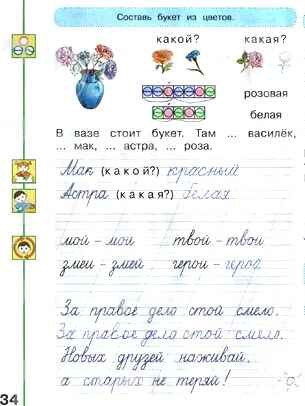 Составь букет из цветов.
какой? какая?
розовая
белая
В вазе стоит букет. Там ... василёк,
... мак, ... астра, ... роза.
Мак (какой?) красный
Астра (какая?) белая
мой – мои твой – твои
змеи – змей герои – герой
За правое дело стой смело.
За правое дело стой смело.
Новых друзей наживай,
а старых не теряй!
34